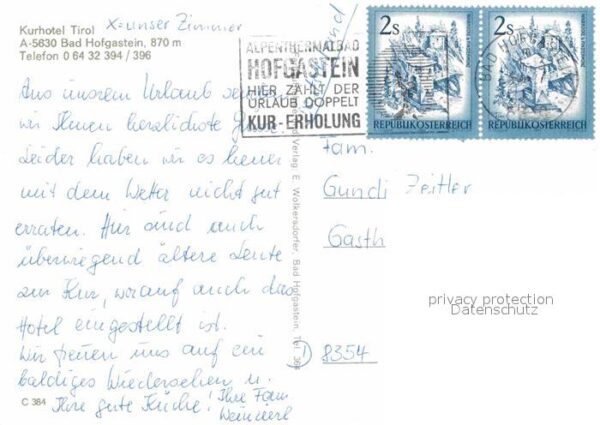 Kurhotel Tirol x = unser Zimmer
A-5630 Bad Hofgastein, 870 m
Telefon 0 64 32 394 / 396
Aus unserem Urlaub
wir Ihnen herzlichste
Leider haben wir es heuer
mit dem Wetter nicht gut
erraten. Hier sind auch
überwiegend ältere Leute
zur Kur, worauf auch das
Hotel eingestellt ist.
Wir freuen uns auf ein
baldiges Wiedersehen u.
Ihre gute Küche! Ihre Fam
C 384
Verlag E. Wolkersdorfer, Bad Hofgastein, Tel. 364
ALPENTHERMALBAD
HOFGASTEIN
HIER ZÄHLT DER
URLAUB DOPPELT
KUR-ERHOLUNG
2s
REPUBLIK ÖSTERREICH
2s
REPUBLIK ÖSTERREICH
BAD HOFGASTEIN
Fam.
Gundi Zeitler
Gasth
D 8354
privacy protection
Datenschutz